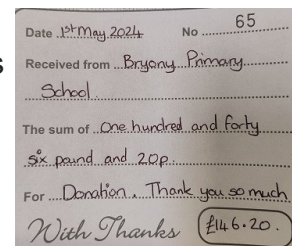 s
Date 1st May 2024 No 65
Received from Bryony Primary
School
The sum of One hundred and forty
six pound and 20p.
For Donation. Thank you so much
With Thanks £146.20.